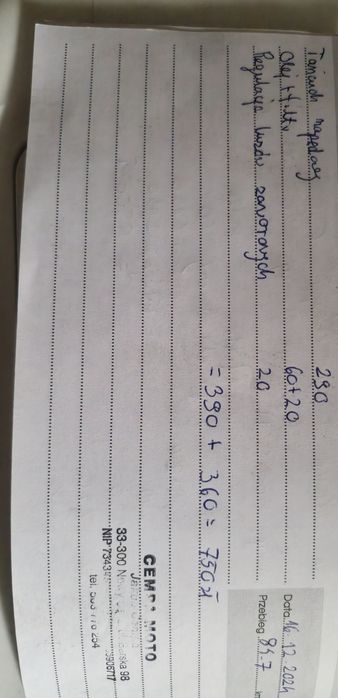 Data 16.12.202
Przebieg 847
Łańcuch napędowy 290
Olej + filtr 60+20
Regulacja luzów zaworowych 20
= 390 + 360 = 750 zł
CEMBA MOTO
33-300 98
NIP 7343
tel.